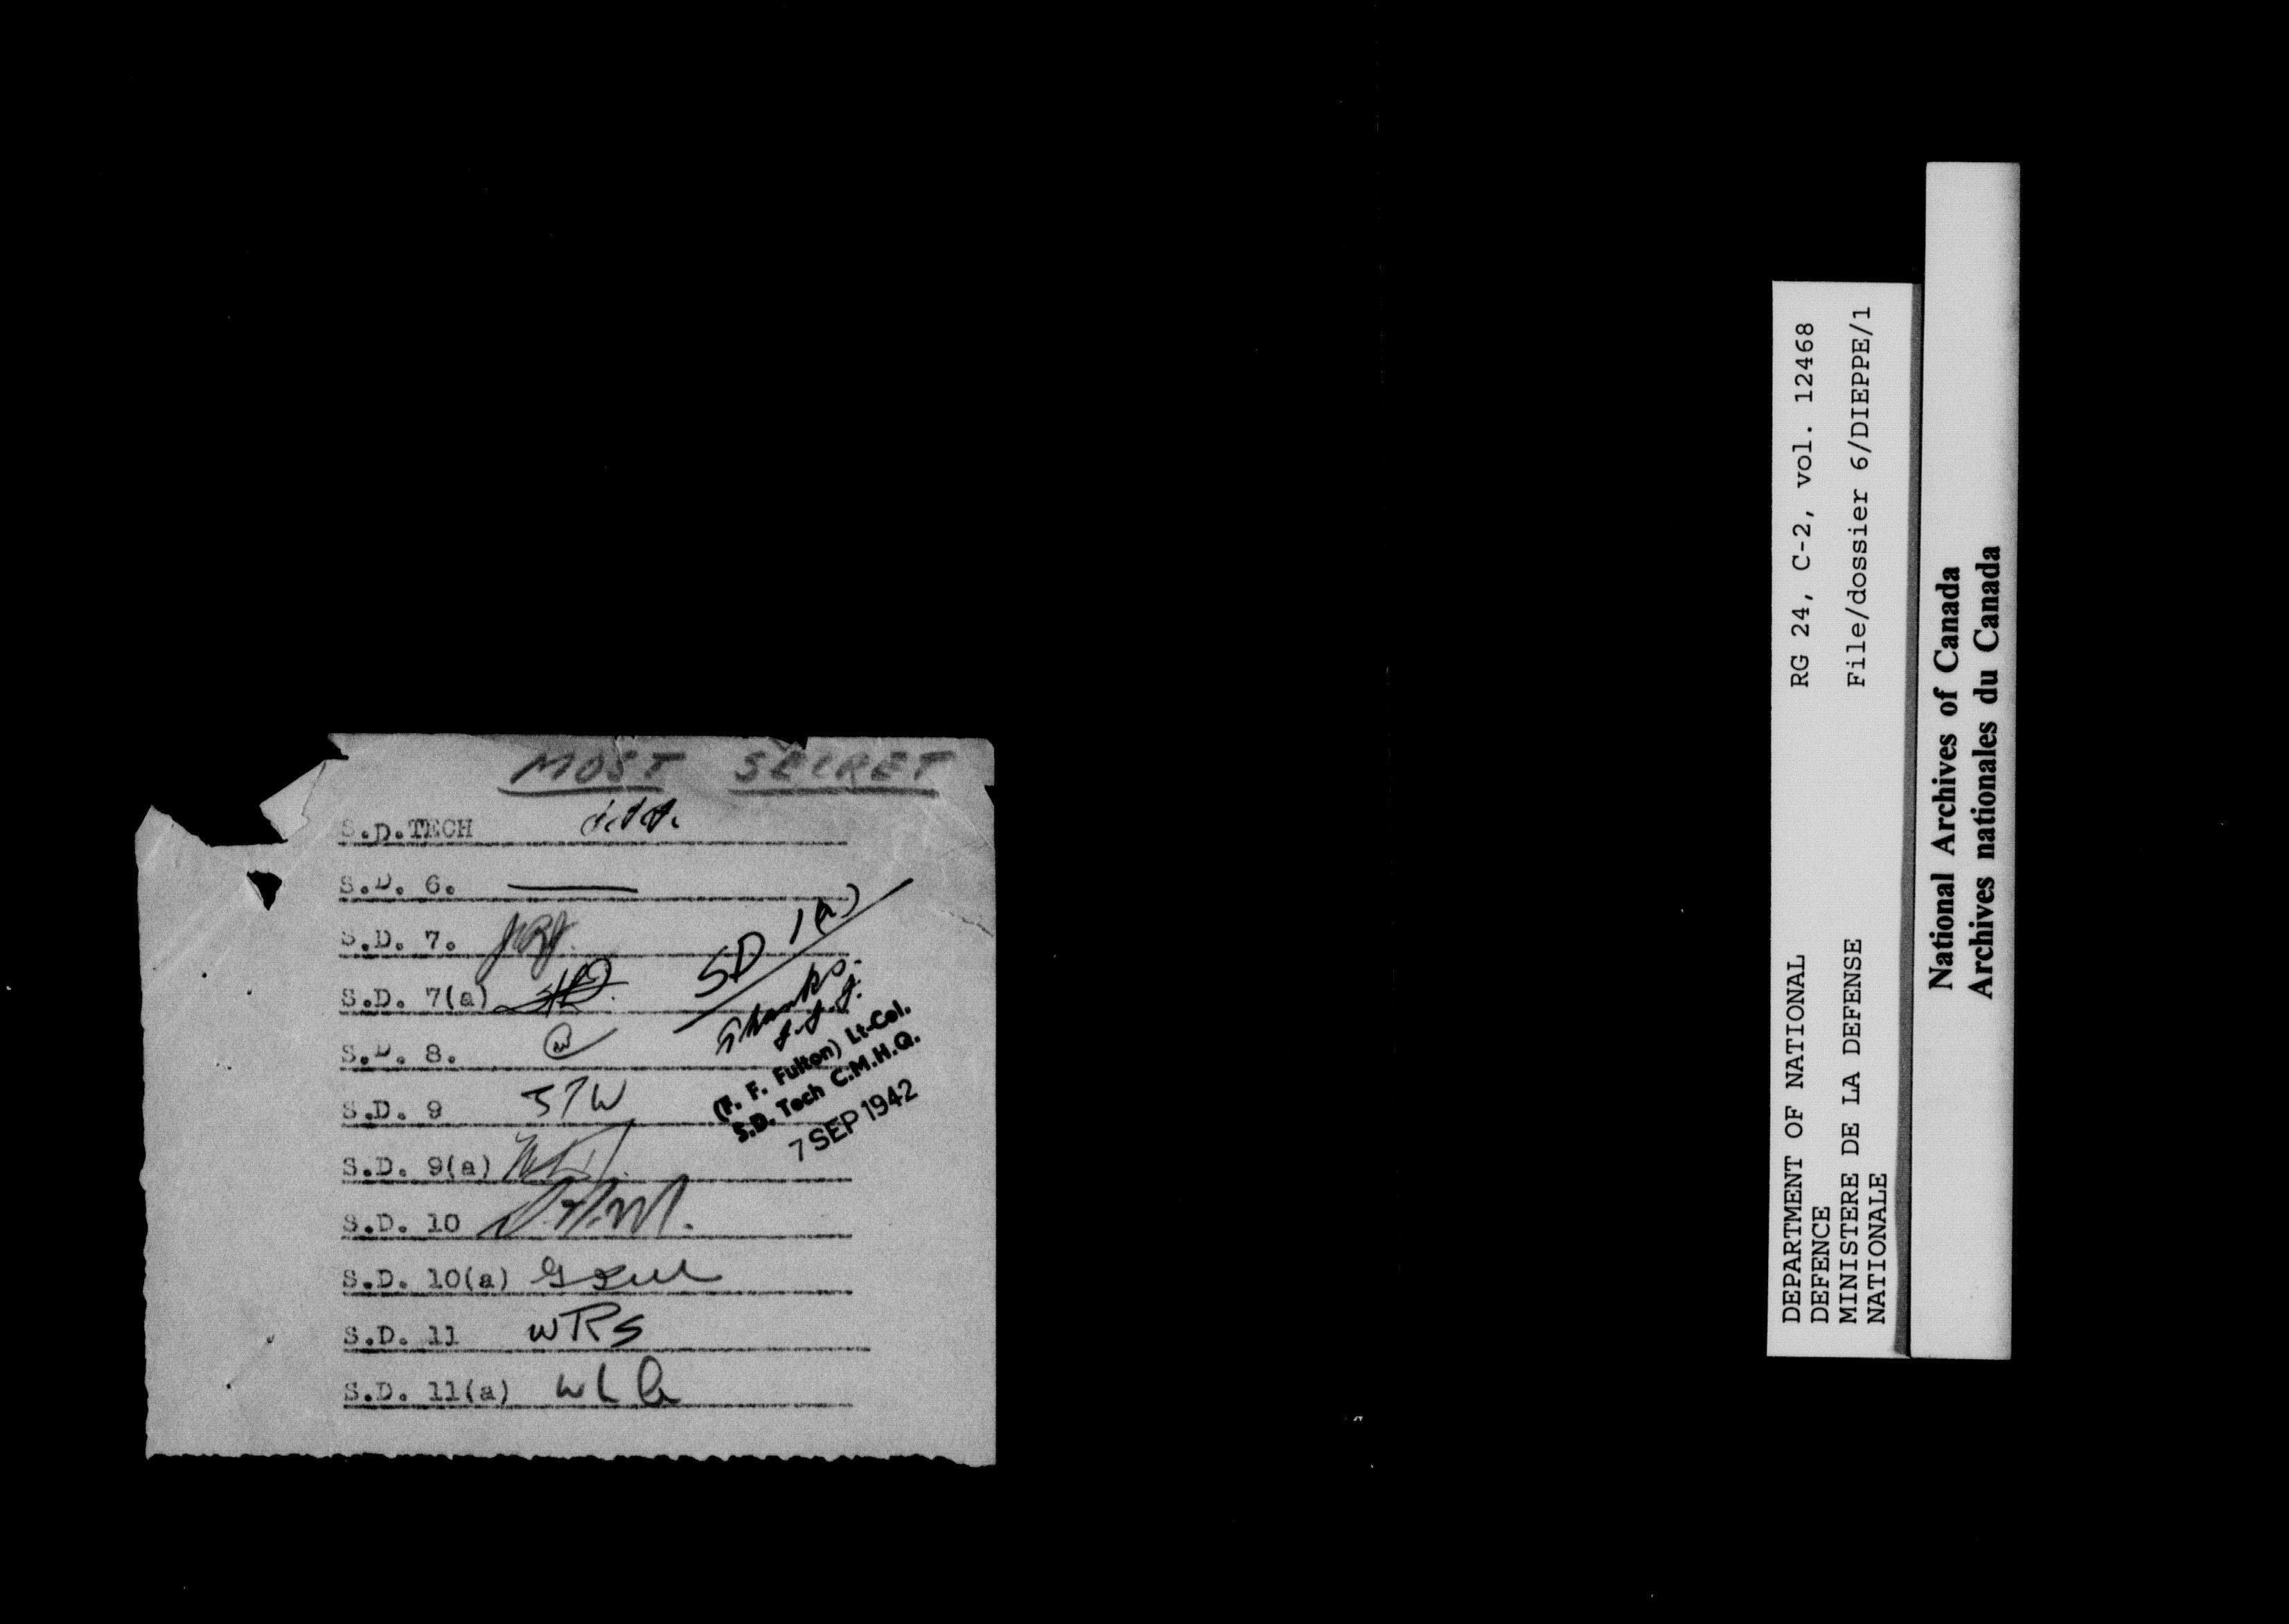 MOST SECRET
S.D.TECH
S.D. 6.
S.D. 7.
S.D. 7(a)
S.D. 8.
S.D. 9 STW
S.D. 9(a)
S.D. 10
S.D. 10(a)
S.D. 11 WRS
S.D. 11(a) WLG
SD 1(a)
Thanks.
(F. F. Fulton) Lt-Col.
S.D. Tech C.M.H.Q.
7 SEP 1942
DEPARTMENT OF NATIONAL
DEFENCE
MINISTERE DE LA DEFENSE
NATIONALE
RG 24, C-2, vol. 12468
File/dossier 6/DIEPPE/1
National Archives of Canada
Archives nationales du Canada